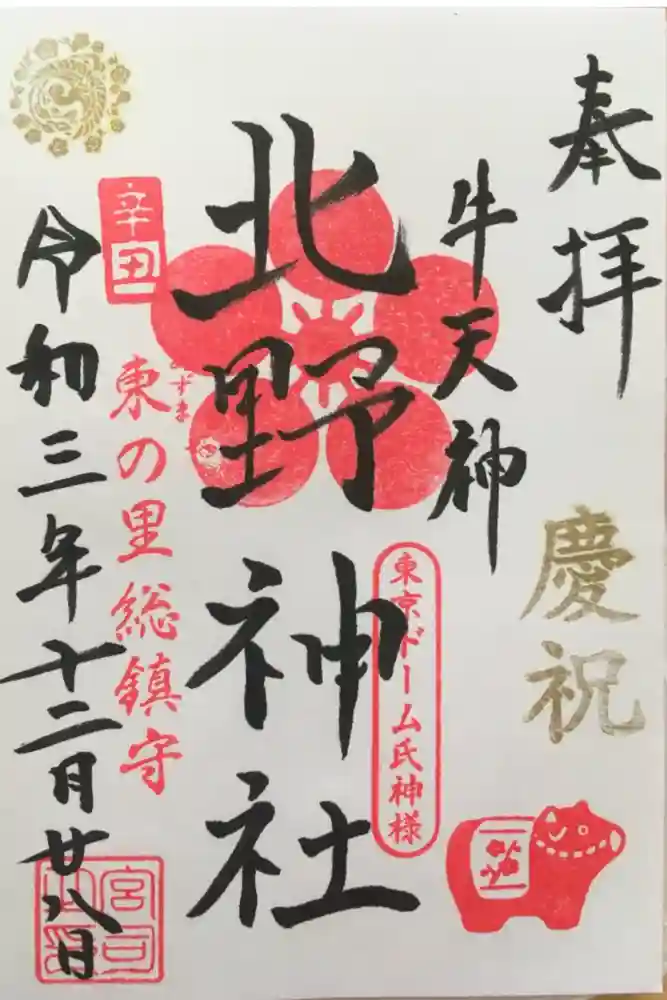 奉拝
慶祝
牛天神
北野神社
東京ドーム氏神様
あずま
東の里総鎮守
辛丑
令和三年十二月廿八日
宮司之印